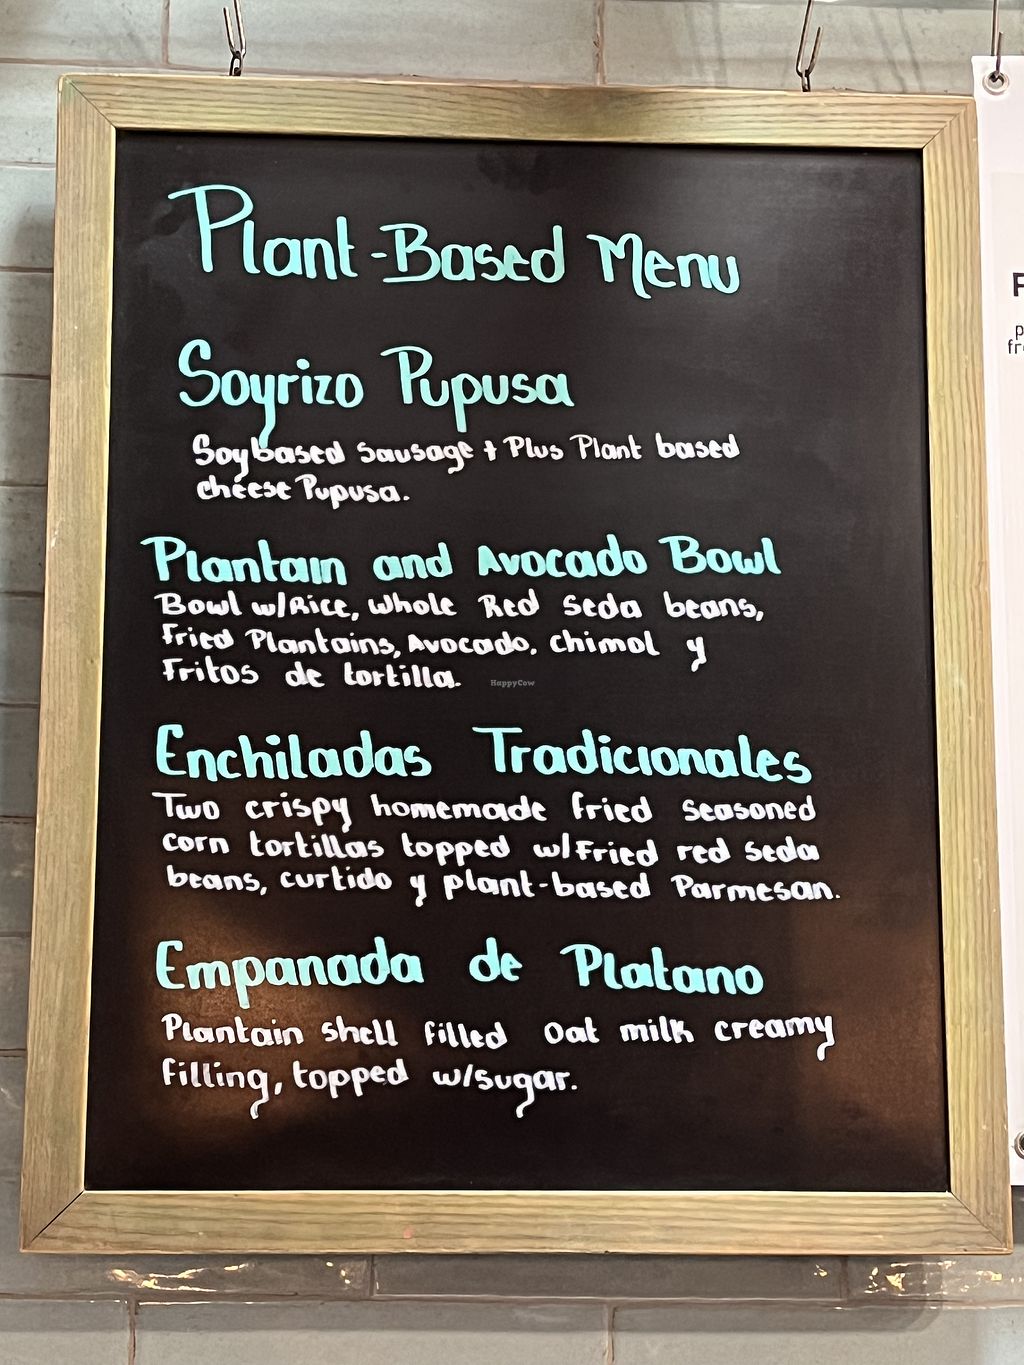 Plant-Based Menu
Soyrizo Pupusa
Soybased Sausage + Plus Plant based
cheese Pupusa.
Plantain and Avocado Bowl
Bowl w/Rice, whole Red Seda beans,
Fried Plantains, Avocado, chimol y
Fritos de tortilla.
HappyCow
Enchiladas Tradicionales
Two crispy homemade fried seasoned
corn tortillas topped w/Fried red seda
beans, curtido y plant-based Parmesan.
Empanada de Platano
Plantain shell filled oat milk creamy
filling, topped w/sugar.